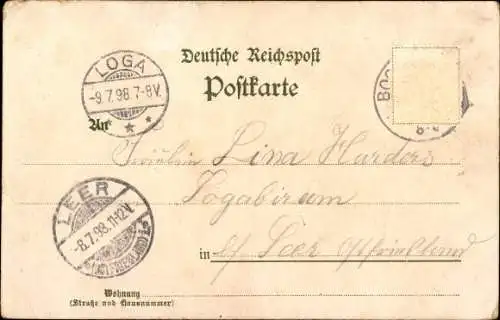 Deutsche Reichspost
Postkarte
LOGA
-9.7.98.7-8V.
BOC
8-
An
Fräulein Lina Harders
Logabirum
LEER
-8.7.98.11-12V.
in b/ Leer Ostfriesland
Wohnung
(Straße und Hausnummer)